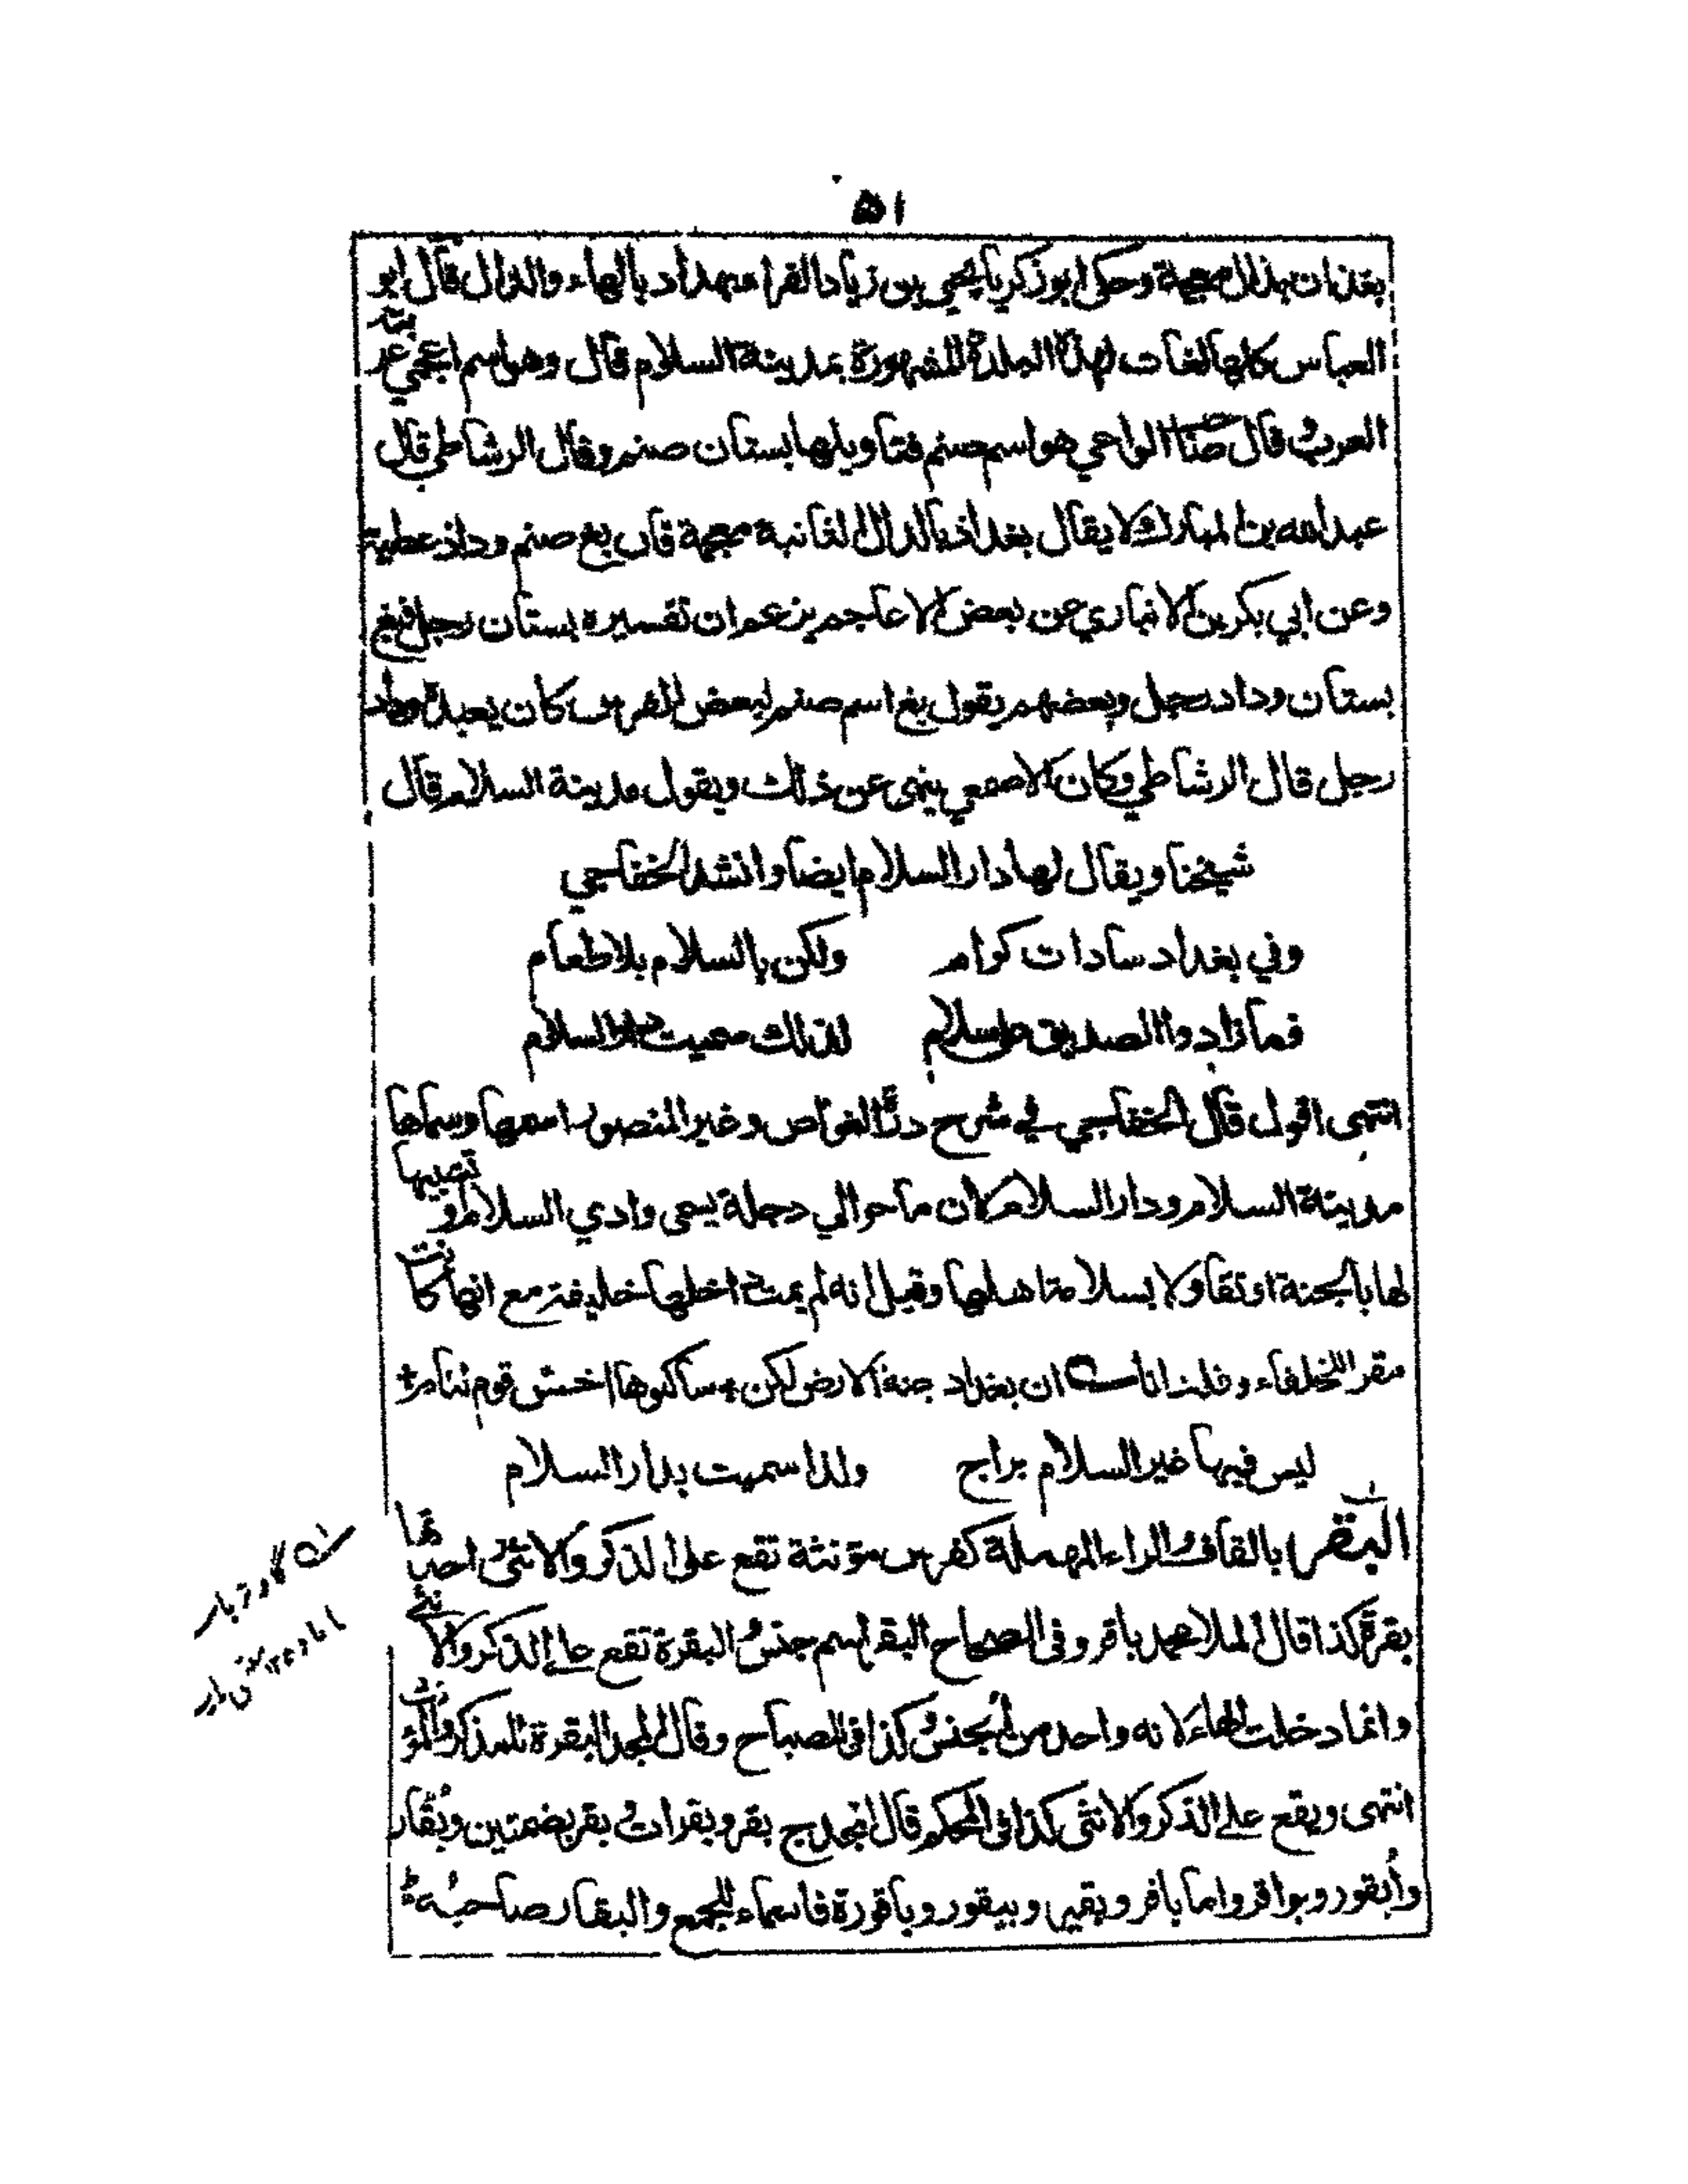 ٥١
بغذان بذال معجمة وحكى ابو زكريا يحيى بن زياد الفرا مهداد بالهاء والدال قال ابو
العباس كلها لغات لهذه البلدة المشهورة بمدينة السلام قال وهو اسم اعجمي عربته
العرب قال صا الواعي هو اسم صنم فتاويلها بستان صنم وقال الرشاطي قال
عبد الله بن المبارك لا يقال بغداذ بالذال الثانية معجمة فان بغ صنم وداذ عطية
وعن ابي بكر بن الانباري عن بعض الاعاجم يزعم ان تفسيره بستان رجل فبغ
بستان وداد رجل وبعضهم يقول بغ اسم صنم لبعض الفرس كان يعبده وداد
رجل قال الرشاطي وكان الاصمعي ينهى عن ذلك ويقول مدينة السلام قال
شيخنا ويقال لها دار السلام ايضا وانشد الخفاجي
وفي بغداد سادات كرام ولكن بالسلام بلا طعام
فما زادوا الصديق على سلام لذلك سميت دار السلام
انتهى اقول قال الخفاجي في شرح درة الغواص وغير المنصور اسمها وسماها
مدينة السلام ودار السلام لان ما حوالي دجلة يسمى وادي السلام او تشبيها
لها بالجنة او تفاولا بسلامة اهلها وقيل انه لم يمت داخلها خليفة مع انها كانت
مقر الخلفاء وقلت انا ان بغداد جنة الارض لكن ساكنوها اخس قوم لئام
ليس فيها غير السلام براج ولذا سميت بدار السلام
البقر بالقاف والراء المهملة كفرس مؤنثة تقع على الذكر والانثى احدتها
بقرة كذا قال الملا محمد باقر وفى الصحاح البقر اسم جنس البقرة تقع على الذكر والانثى
وانما دخلت الهاء لانه واحد من الجنس كذا فى المصباح وقال المجد البقرة للمذكر والمؤنث
انتهى ويقع على الذكر والانثى كذا فى المحكم قال المجد ج بقر وبقرات وبقر بضمتين وبقار
وأبقور وبواقر واما باقر وبقير وبيقور وباقورة فاسماء للجمع والبقار صاحبه